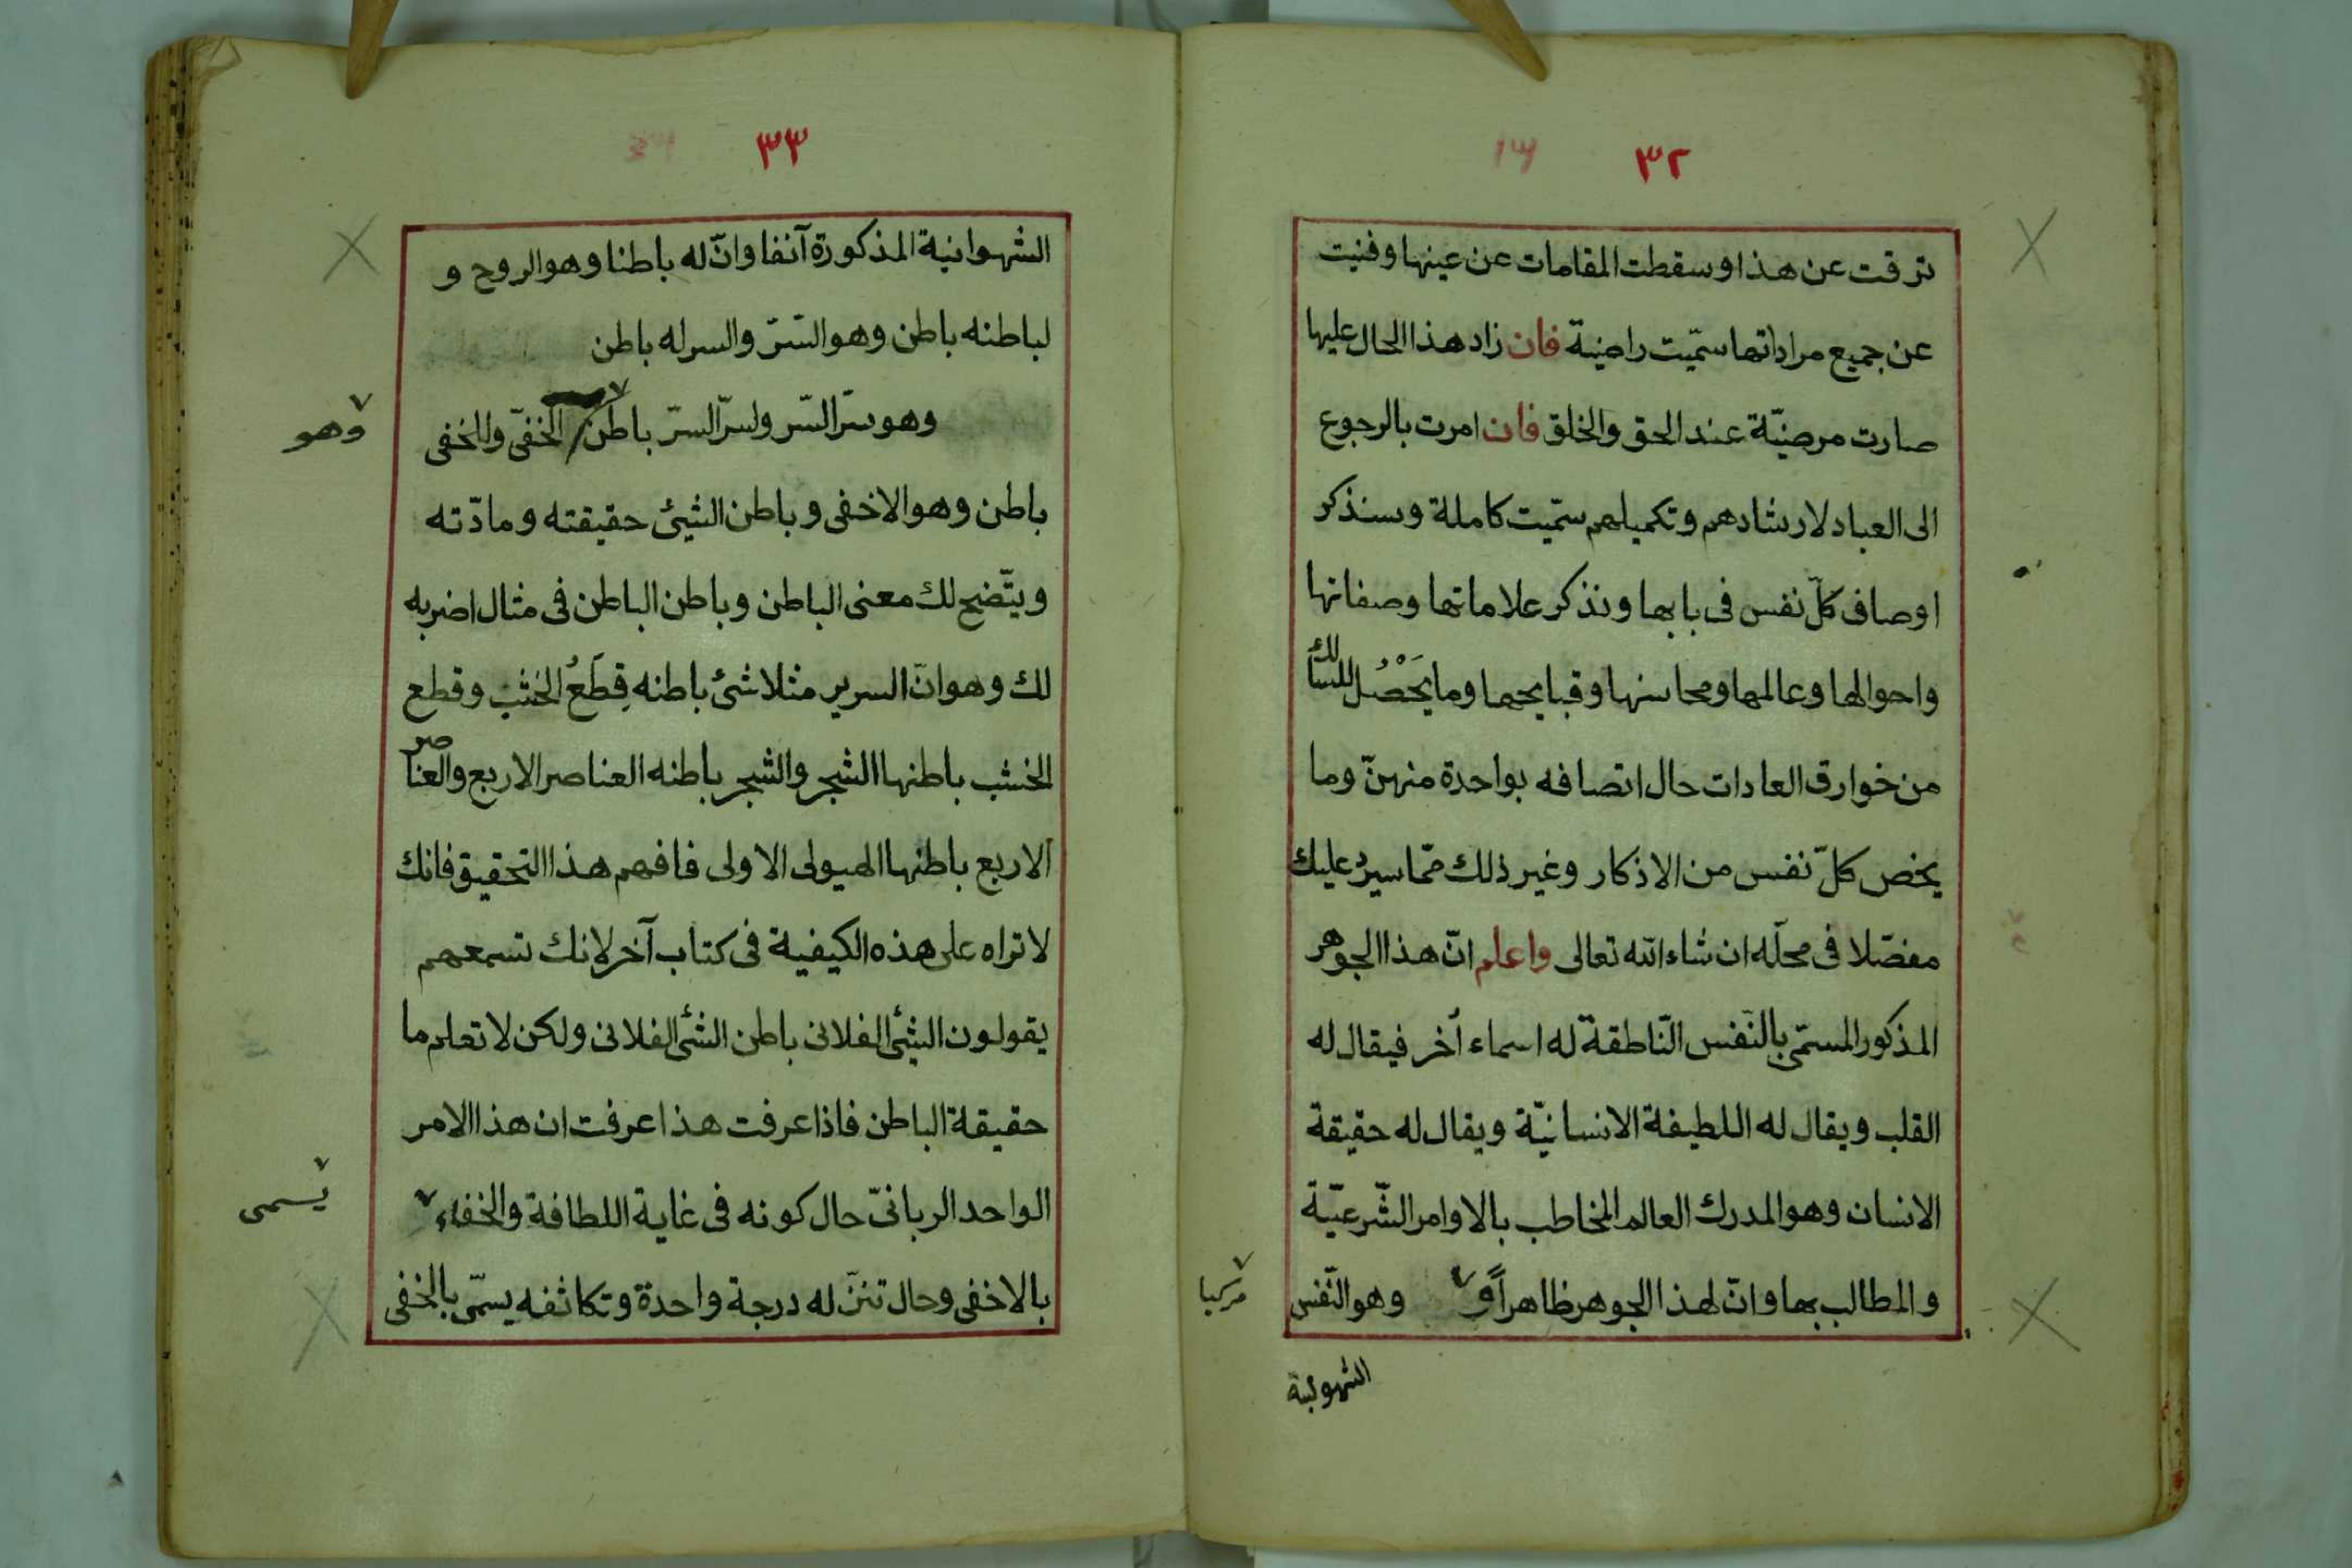 ٣٢
ترقت عن هذا وسقطت المقامات عن عينها وفنيت
عن جميع مراداتها سمّيت راضية فان زاد هذا الحال عليها
صارت مرضيّة عند الحق والخلق فان امرت بالرجوع
الى العباد لارشادهم وتكميلهم سمّيت كاملة وسنذكر
اوصاف كلّ نفس فى بابها ونذكر علاماتها وصفاتها
واحوالها وعالمها ومحاسنها وقبايحها وما يَحْصُل للسالك
من خوارق العادات حال اتصافه بواحدة منهنّ وما
يخص كلّ نفس من الاذكار وغير ذلك ممّا سيرد عليك
مفصّلا فى محلّه ان شاء الله تعالى واعلم انّ هذا الجوهر
المذكور المسمّى بالنّفس النّاطقة له اسماء أخر فيقال له
القلب ويقال له اللطيفة الانسانيّة ويقال له حقيقة
الانسان وهو المدرك العالم المخاطب بالاوامر الشّرعيّة
والمطالب بها وانّ لهذا الجوهر ظاهراً و وهو النّفس
مركبا
الشهوانية
٣٣
الشهوانية المذكورة آنفا وانّ له باطنا وهو الروح و
لباطنه باطن وهو السّرّ والسر له باطن
وهو سرّ السّر ولسرّ السرّ باطن الخفىّ وللخفى
وهو
باطن وهو الاخفى وباطن الشيئ حقيقته ومادّته
ويتّضح لك معنى الباطن وباطن الباطن فى مثال اضربه
لك وهو انّ السرير مثلا شئ باطنه قِطَعُ الخشب وقطع
الخشب باطنها الشجر والشجر باطنه العناصر الاربع والعناصر
الاربع باطنها الهيولى الاولى فافهم هذا التحقيق فانك
لا تراه على هذه الكيفية فى كتاب آخر لانك تسمعهم
يقولون الشئ الفلانى باطن الشئ الفلانى ولكن لا تعلم ما
حقيقة الباطن فاذا عرفت هذا عرفت ان هذا الامر
الواحد الربانىّ حال كونه فى غاية اللطافة والخفاء
يسمى
بالاخفى وحال تنزّله درجة واحدة وتكاثفه يسمّى بالخفى